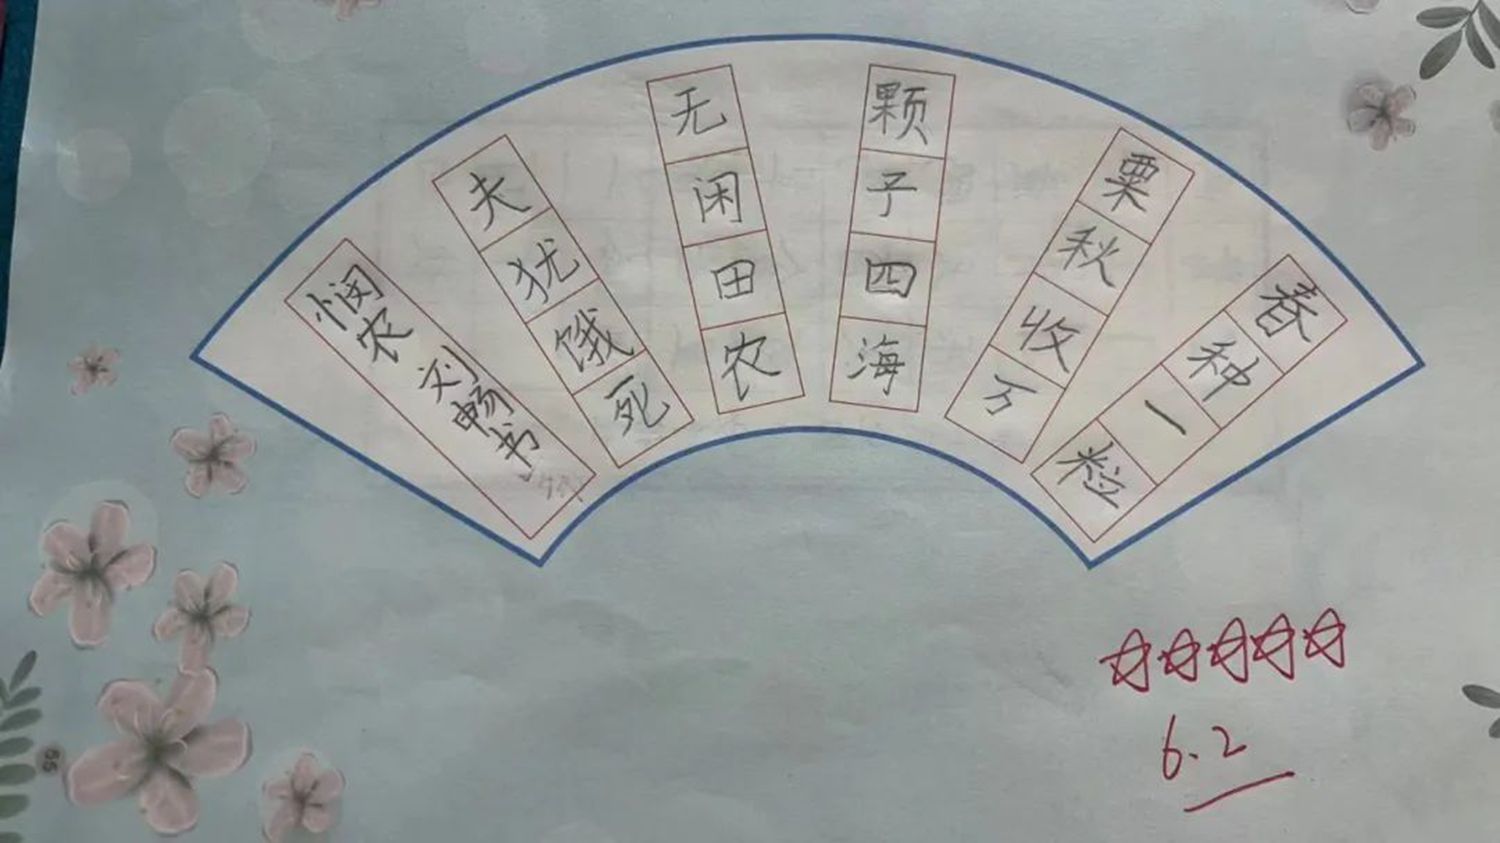 春种一粒
粟秋收万
颗子四海
无闲田农
夫犹饿死
悯农 刘畅书
6.2
65